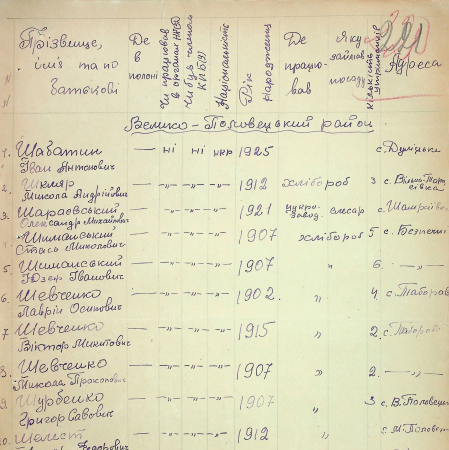 Прізвище, ім'я та по батькові | Де в полоні | Чи працював в органах НКВД | Чи був членом КП(б)У | Національність | Рік народження | Де працював | Яку займав посаду | кількість утриманців | Адреса
220
Велико-Половецький район
1. Шабатин Іван Антонович — ні ні укр 1925 с. Дулицьке
2. Шкляр Микола Андрійович — -"- -"- -"- 1912 хлібороб 3 с.
3. Олександр Михайлович — -"- -"- -"- 1921 цукро-завод. слюсар с.
4. Шиманський Стась — -"- -"- -"- 1907 хлібороб 5 с.
5. Шиманський Юзеф Іванович — -"- -"- -"- 1907 " 6. —"—
6. Шевченко Лаврін Осипович — -"- -"- -"- 1902. " 4. с.
7 Шевченко Віктор Микитович — -"- -"- -"- 1915 " 2. с.
8. Шевченко Микола Прокопович — -"- -"- -"- 1907 " 2. —"—
9 Шурбенко Григор Савович — -"- -"- -"- 1907 " 3 с. В.
10. Шелест Федорович — -"- -"- -"- 1912 " с. М.